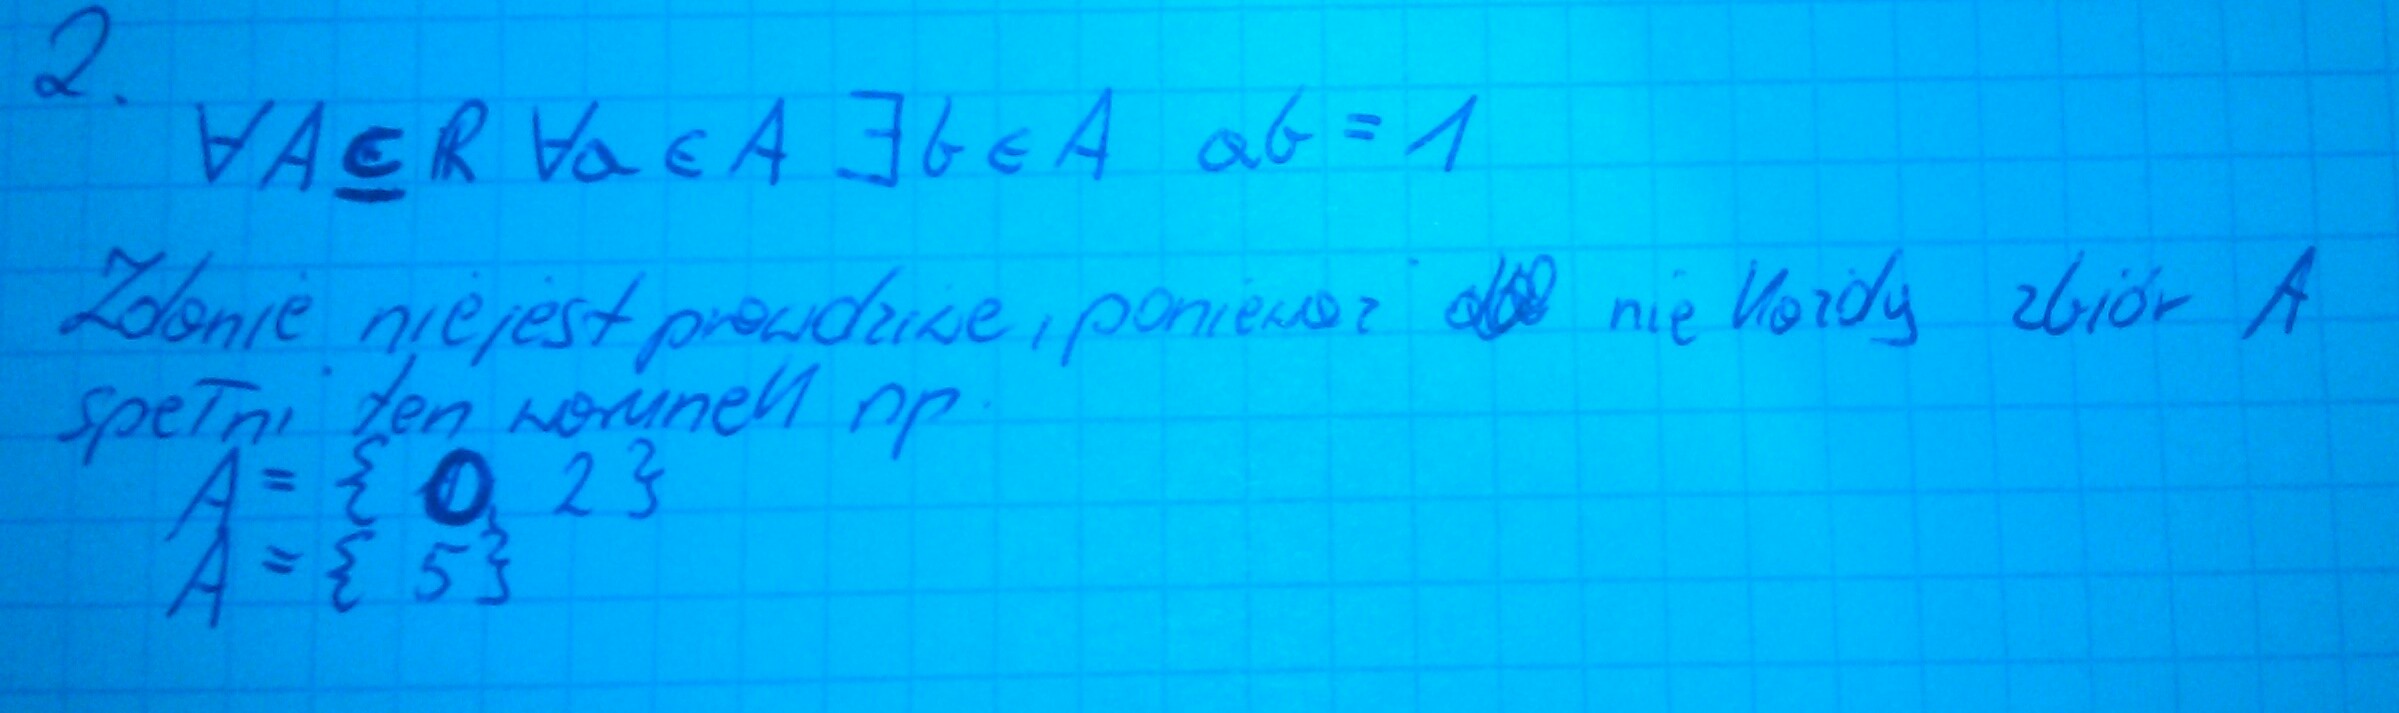 2.
∀A⊆R ∀a∈A ∃b∈A ab=1
Zdanie nie jest prawdziwe, ponieważ nie każdy zbiór A
spełni ten warunek np.
A={0, 2}
A={5}